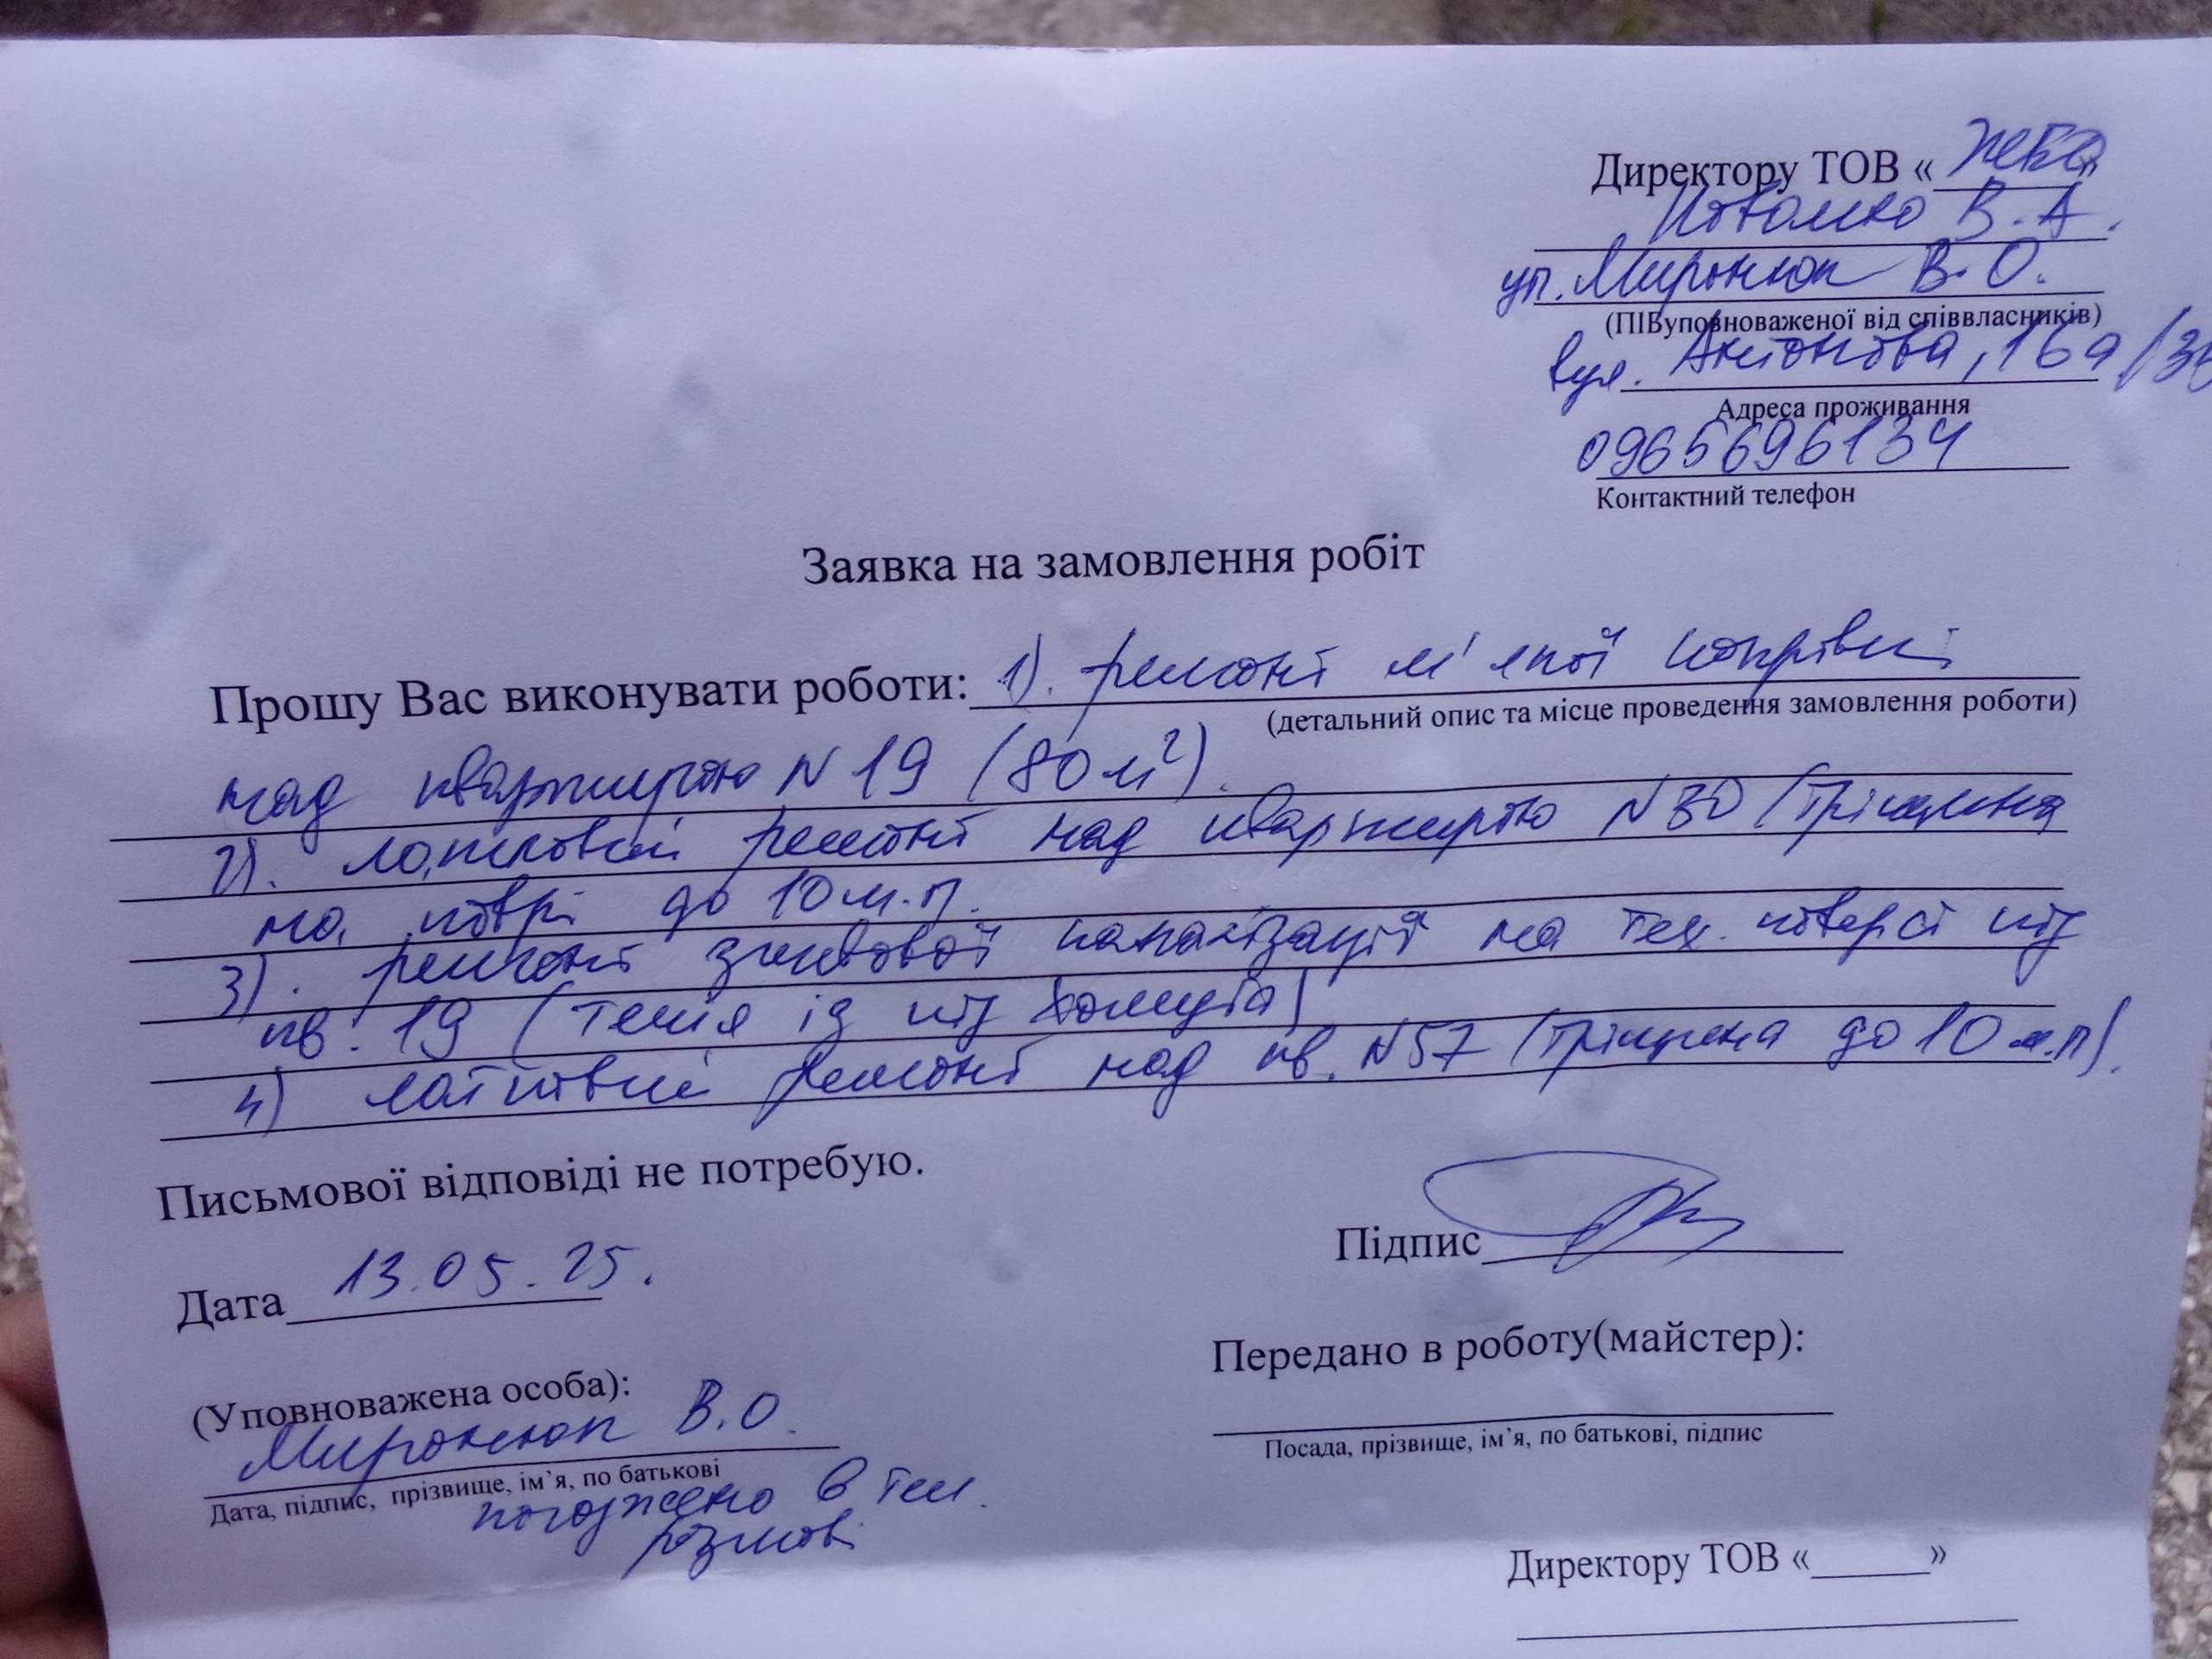 Директору ТОВ « »
В.А.
уп. Миронюк В.О.
(ПІБуповноваженої від співвласників)
вул. Антонова, 16а/
Адреса проживання
0965696134
Контактний телефон
Заявка на замовлення робіт
Прошу Вас виконувати роботи: 1). ремонт м'якої покрівлі
(детальний опис та місце проведення замовлення роботи)
над квартирою N 19 (80 м²).
2). латковий ремонт над квартирою N 30 (тріщина
на покрі до 10 м.п.
3). ремонт зливової каналізації на тех. поверсі під
кв. 19 (течія із під хомута)
4) латковий ремонт над кв. N 57 (тріщина до 10 м.п).
Письмової відповіді не потребую.
Підпис
Дата 13.05.25.
Передано в роботу(майстер):
(Уповноважена особа):
Миронюк В.О.
Посада, прізвище, ім’я, по батькові, підпис
Дата, підпис, прізвище, ім’я, по батькові
погоджено в тел.
розмові
Директору ТОВ «______»